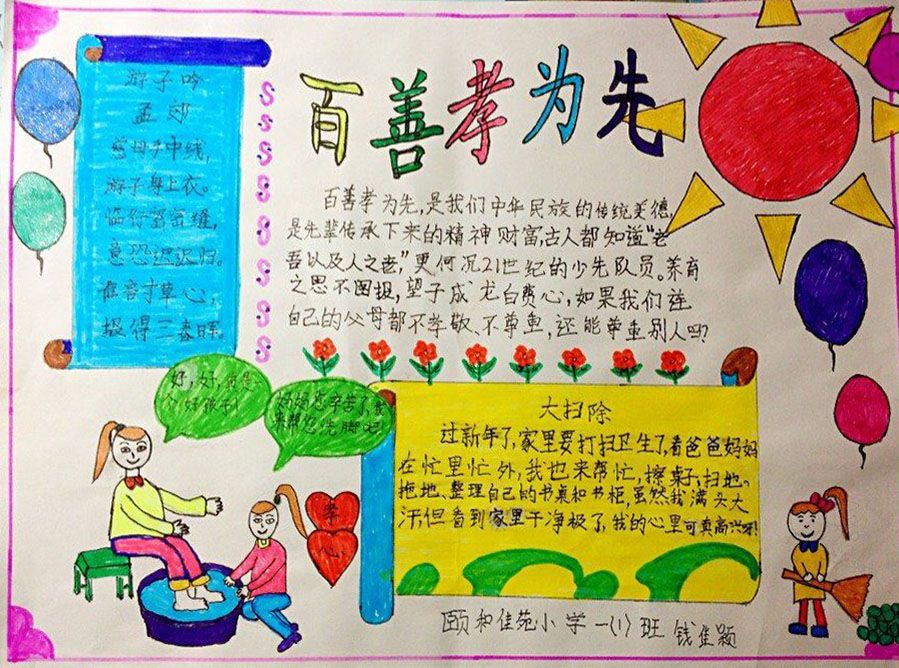 百善孝为先
游子吟
孟郊
慈母手中线,
游子身上衣。
临行密密缝,
意恐迟迟归。
谁言寸草心,
报得三春晖。
百善孝为先,是我们中华民族的传统美德,
是先辈传承下来的精神财富,古人都知道“老
吾以及人之老,”更何况21世纪的少先队员。养育
之恩不图报,望子成龙白费心,如果我们连
自己的父母都不孝敬、不尊重,还能尊重别人吗?
好,好,我是一
个好孩子!
妈妈您辛苦了,我
来帮您洗脚吧!
孝
心
大扫除
过新年了,家里要打扫卫生了,看爸爸妈妈
在忙里忙外,我也来帮忙,擦桌子,扫地。
拖地、整理自己的书桌和书柜虽然我满头大
汗但看到家里干净极了,我的心里可真高兴呀!
颐和佳苑小学一(1)班 钱佳颖